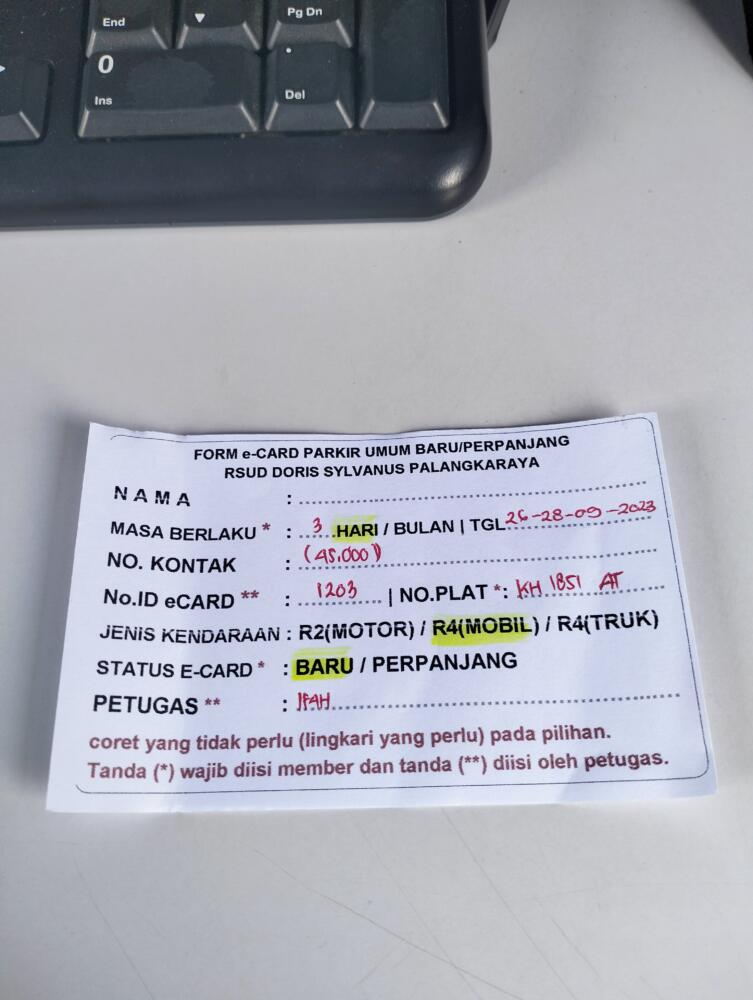 End
▼
Pg Dn
0
Ins
.
Del
FORM e-CARD PARKIR UMUM BARU/PERPANJANG
RSUD DORIS SYLVANUS PALANGKARAYA
NAMA :
MASA BERLAKU * : 3 HARI / BULAN | TGL 26-28-09-2023
NO. KONTAK : (45.000)
No.ID eCARD ** : 1203 | NO.PLAT *: KH 1851 AT
JENIS KENDARAAN : R2(MOTOR) / R4(MOBIL) / R4(TRUK)
STATUS E-CARD * : BARU / PERPANJANG
PETUGAS ** : IFAH
coret yang tidak perlu (lingkari yang perlu) pada pilihan.
Tanda (*) wajib diisi member dan tanda (**) diisi oleh petugas.